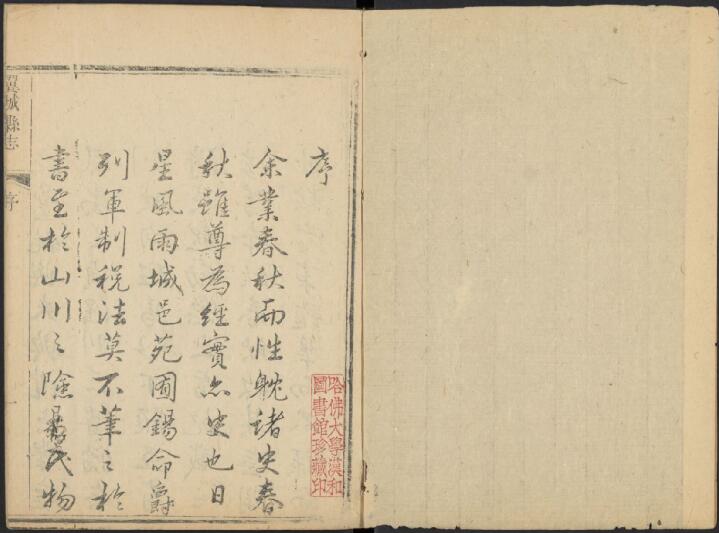 序
余業春秋而性躭諸史春
秋雖尊為經實亦史也日
星風雨城邑苑囿錫命爵
列軍制稅法莫不筆之於
書至於山川之險易民物
翼城縣志
序
哈佛大學漢和
圖書館珍藏印